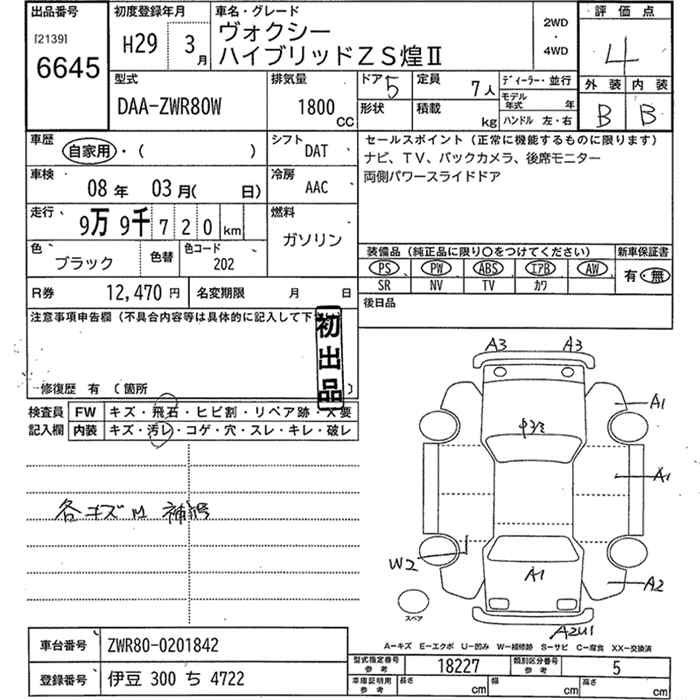 出品番号
[2139]
6645
初度登録年月
H29 3月
車名・グレード
ヴォクシー
ハイブリッドZS煌Ⅱ
2WD
・
4WD
評価点
4
外装 内装
B B
型式
DAA-ZWR80W
排気量
1800 CC
ドア 5
形状
定員 7人
積載 kg
ディーラー・並行
モデル年式 年
ハンドル 左・右
車歴
自家用・( )
シフト
DAT
セールスポイント(正常に機能するものに限ります)
ナビ、TV、バックカメラ、後席モニター
両側パワースライドドア
車検
08年 03月( 日)
冷房
AAC
走行
9万9千720km
燃料
ガソリン
色
ブラック
色替
色コード
202
装備品(純正品に限り○をつけてください)
PS PW ABS エアB AW
SR NV TV カワ
新車保証書
有・無
R券 12,470円
名変期限 月 日
後日品
注意事項申告欄(不具合内容等は具体的に記入して下
初出品
修復歴 有(箇所 )
検査員記入欄
FW キズ・飛石・ヒビ割・リペア跡・X要
内装 キズ・汚レ・コゲ・穴・スレ・キレ・破レ
各キズM
A3 A3
A1
A1
W2
A1
A2
スペア
A2U1
A―キズ E―エクボ U―凹み W―補修跡 S―サビ C―腐食 XX―交換済
車台番号 ZWR80-0201842
登録番号 伊豆 300 ち 4722
型式指定番号 参考 18227
類別区分番号 参考 5
車庫証明用 参考 長さ cm 幅 cm 高さ cm